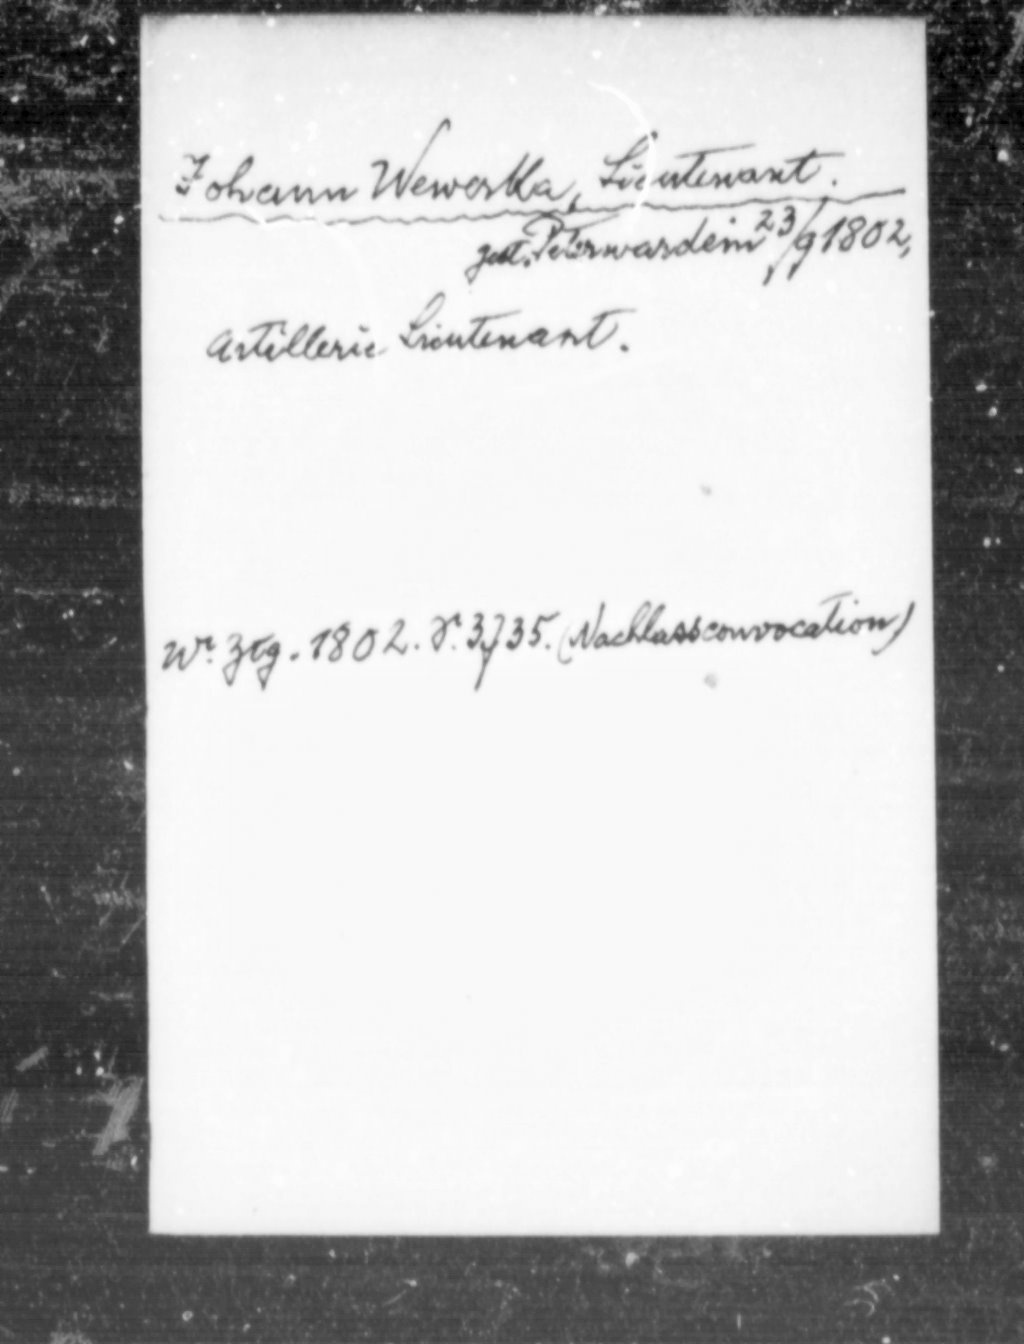 Johann Wewerka, Lieutenant.
gest. Peterwardein 23/9 1802,
Artillerie Lieutenant.
Wr. Ztg. 1802. S. 3735. (Nachlassconvocation)